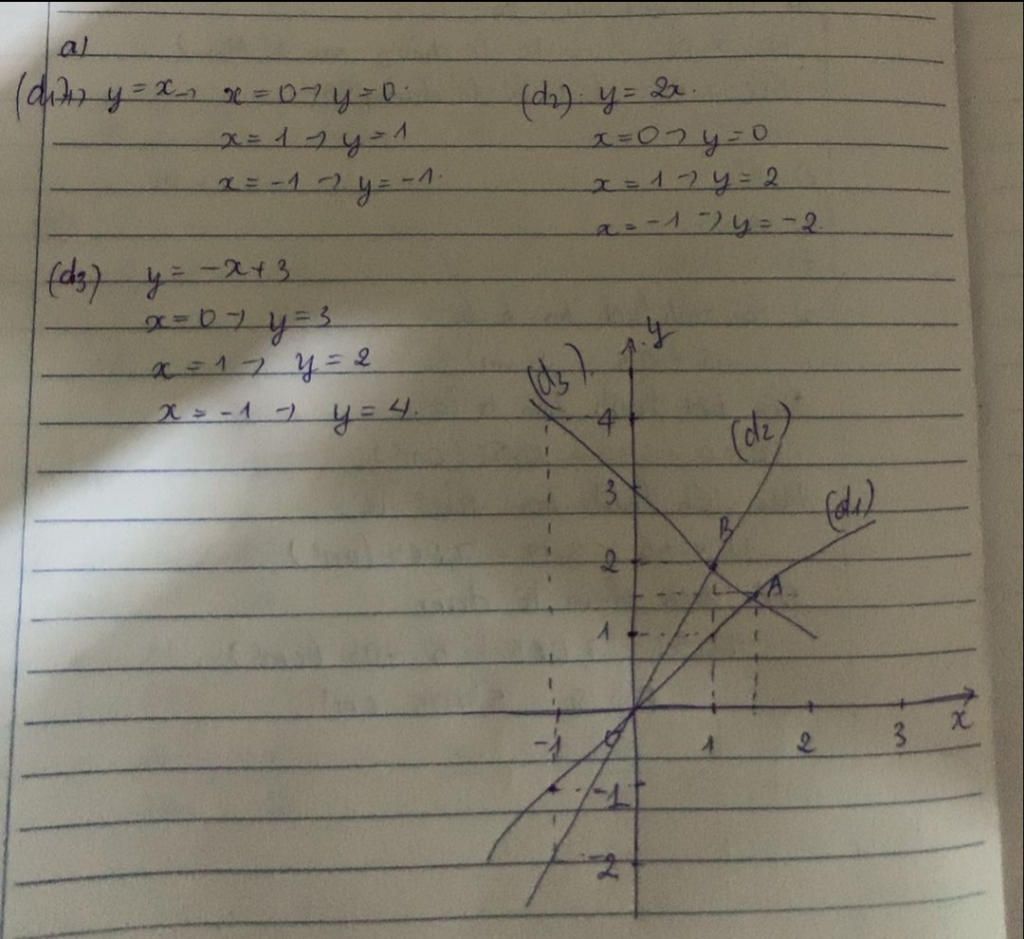 a)
(d1) → y = x → x = 0 → y = 0.
x = 1 → y = 1
x = -1 → y = -1.
(d2). y = 2x.
x = 0 → y = 0
x = 1 → y = 2
x = -1 → y = -2.
(d3) y = -x + 3
x = 0 → y = 3
x = 1 → y = 2
x = -1 → y = 4.
y
(d3).
4
(d2)
3
(d1)
B
2
A
1
-1
O
1
2
3
x
-1
-2